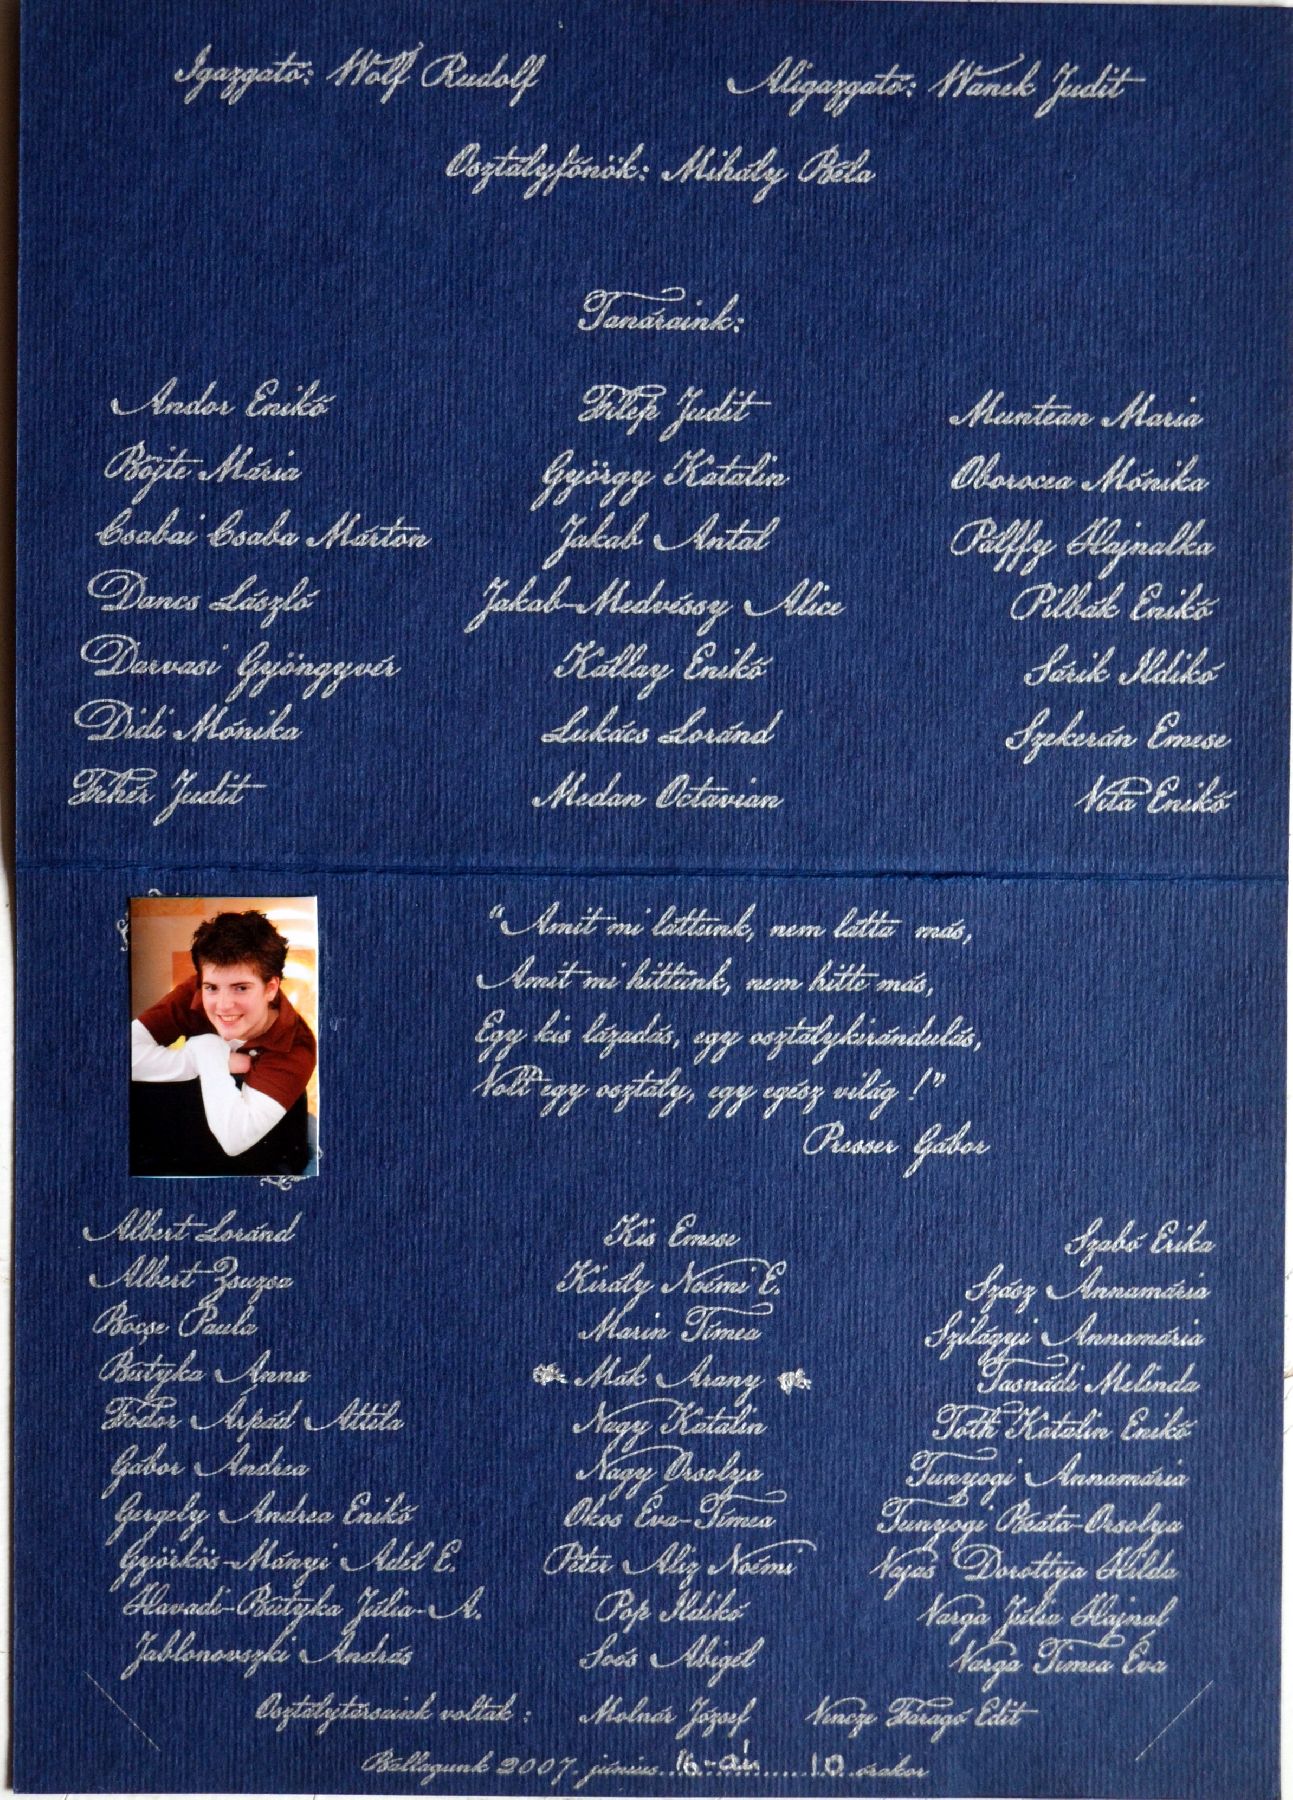 Igazgató: Wolf Rudolf Aligazgató: Wanek Judit
Osztályfőnök: Mihály Béla
Tanáraink:
Andor Enikő Filep Judit Muntean Maria
Bőjte Mária György Katalin Oborocea Mónika
Csabai Csaba Márton Jakab Antal Pálffy Hajnalka
Dancs László Jakab-Medvéssy Alice Pilbák Enikő
Darvasi Gyöngyvér Kállay Enikő Sárik Ildikó
Didi Mónika Lukács Loránd Szekerán Emese
Fehér Judit Medan Octavian Vita Enikő
"Amit mi láttunk, nem látta más,
Amit mi hittünk, nem hitte más,
Egy kis lázadás, egy osztálykirándulás,
Volt egy osztály, egy egész világ!"
Presser Gábor
Albert Loránd Kis Emese Szabó Erika
Albert Zsuzsa Király Noémi E. Szász Annamária
Bocşe Paula Marin Tímea Szilágyi Annamária
Butyka Anna Mák Arany Tasnádi Melinda
Fodor Árpád Attila Nagy Katalin Tóth Katalin Enikő
Gábor Andrea Nagy Orsolya Tunyogi Annamária
Gergely Andrea Enikő Okos Éva-Tímea Tunyogi Beáta-Orsolya
Györkös-Mányi Adél E. Péter Aliz Noémi Vajas Dorottya Hilda
Havadi-Butyka Júlia-A. Pop Ildikó Varga Júlia Hajnal
Jablonovszki András Soós Abigél Varga Tímea Éva
Osztálytársaink voltak: Molnár József Vincze Faragó Edit
Ballagunk 2007. június 16-án 10 órakor